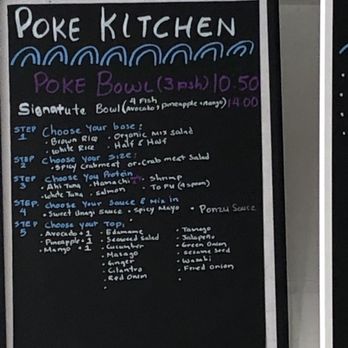 POKE KITCHEN
POKE BOWL (3 Fish) 10.50
Signature Bowl (4 Fish Avocado, pineapple + mango) 14.00
STEP 1 Choose Your base:
• Brown Rice • Organic Mix Salad
• White Rice • Half & Half
STEP 2 Choose Your Size:
• Spicy Crabmeat or • Crab meat Salad
STEP 3 Choose You Protein
• Ahi Tuna • Hamachi • Shrimp
• White Tuna • Salmon • Tofu (4 spoon)
STEP 4 Choose Your Sauce & Mix in
• Sweet Unagi Sauce • Spicy Mayo • Ponzu Sauce
STEP 5 Choose Your Top:
• Avocado + 1 • Edamame • Tamago
• Pineapple + 1 • Seaweed Salad • Jalapeño
• Mango + 1 • Cucumber • Green Onion
• Masago • Sesame Seed
• Ginger • Wasabi
• Cilantro • Fried Onion
• Red Onion